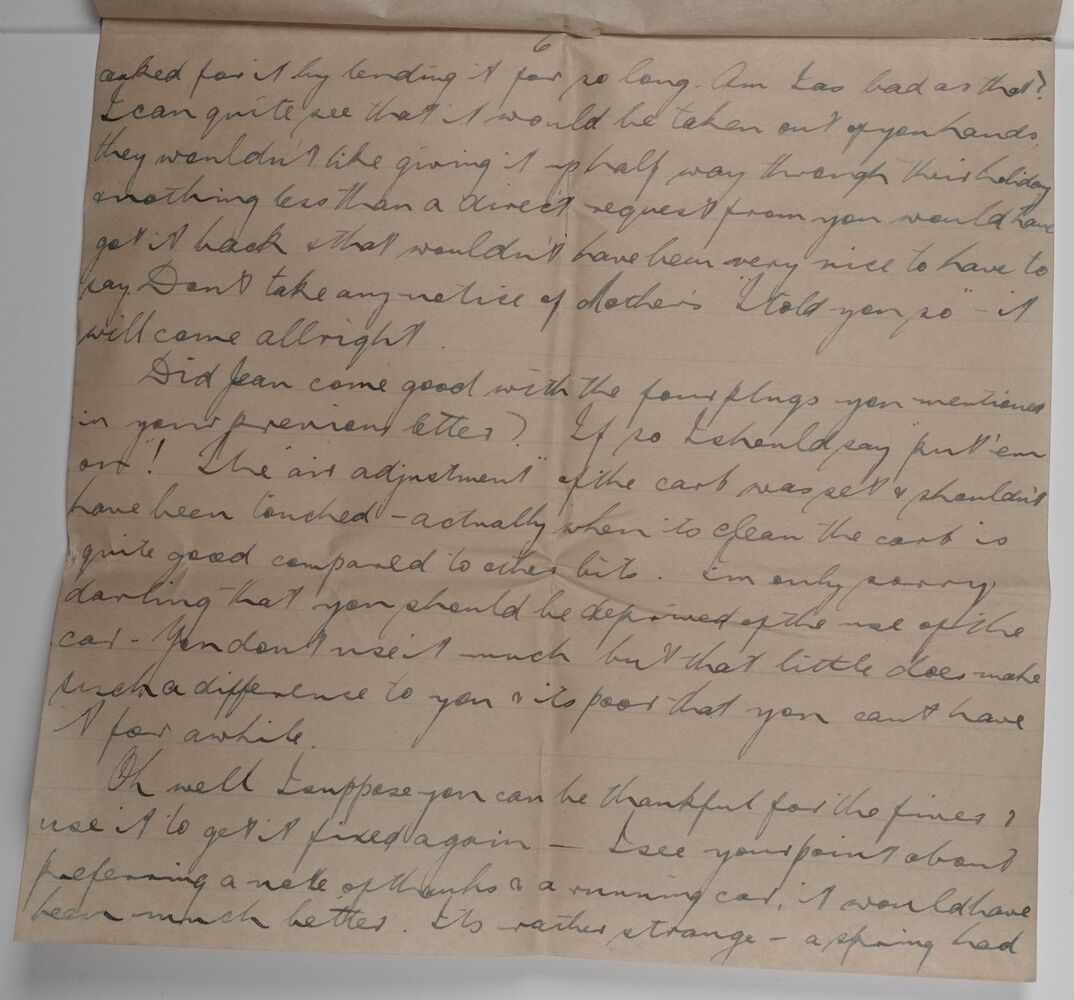 6
asked for it by lending it for so long. Am I as bad as that?
I can quite see that it would be taken out of your hands,
they wouldn't like giving it up half way through their holiday
& nothing less than a direct request from you would have
got it back & that wouldn't have been very nice to have to
say. Don't take any notice of Mother's "I told you so" – it
will come allright.
Did Jean come good with the four plugs you mentioned
in your previous letter? If so I should say "put 'em
on"! The "air adjustment" of the carb was set & shouldn't
have been touched – actually when its clean the carb is
quite good compared to other bits. I'm only sorry,
darling that you should be deprived of the use of the
car – You don't use it much but that little does make
such a difference to you & its poor that you can't have
it for awhile.
Oh well I suppose you can be thankful for the fiver &
use it to get it fixed again – I see your point about
preferring a note of thanks & a running car, it would have
been much better. Its rather strange – a spring had